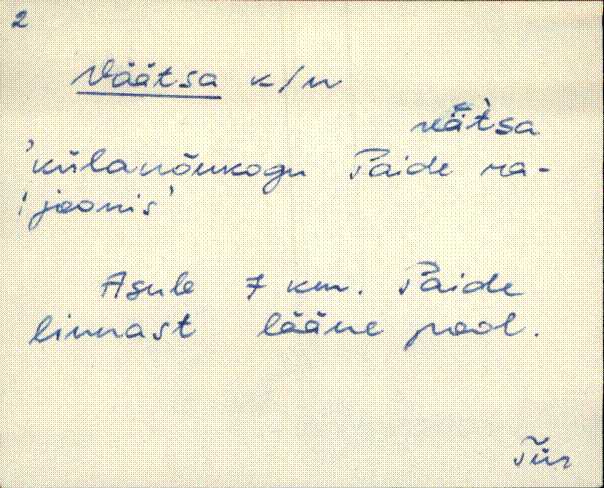 2
Väätsa k/n
vä̆t̀sa
'külanõukogu Paide ra-
joonis'
Asub 7 km. Paide
linnast lääne pool.
Tür